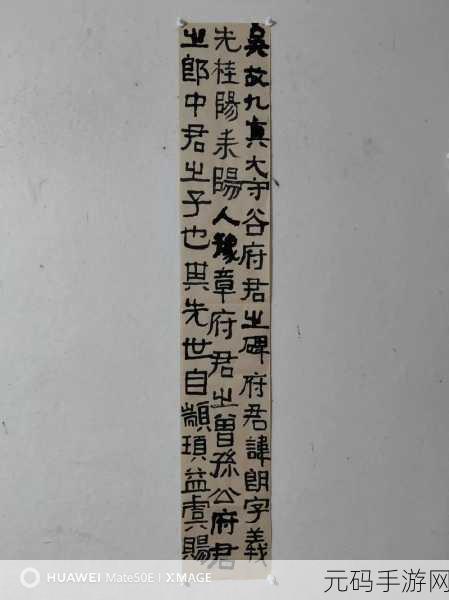 吴故九真大守谷府君之碑府君諱朗字義
先桂陽耒陽人豫章府君之曾孫公府君
之郎中君之子也其先世自顓頊益虞賜
HUAWEI Mate50E | XMAGE
元码手游网